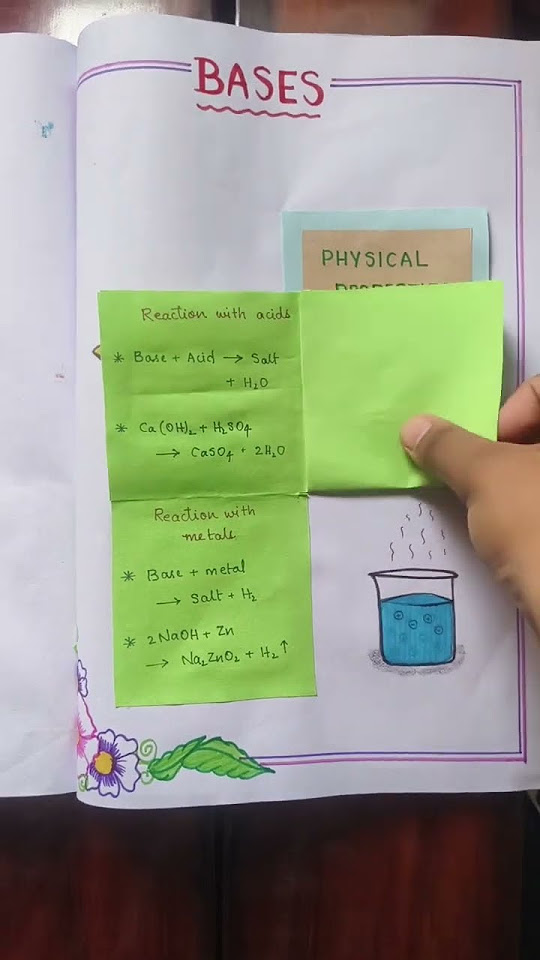 BASES
PHYSICAL
Reaction with acids
* Base + Acid → Salt
+ H₂O
* Ca(OH)₂ + H₂SO₄
→ CaSO₄ + 2H₂O
Reaction with
metals
* Base + metal
→ Salt + H₂
* 2NaOH + Zn
→ Na₂ZnO₂ + H₂↑